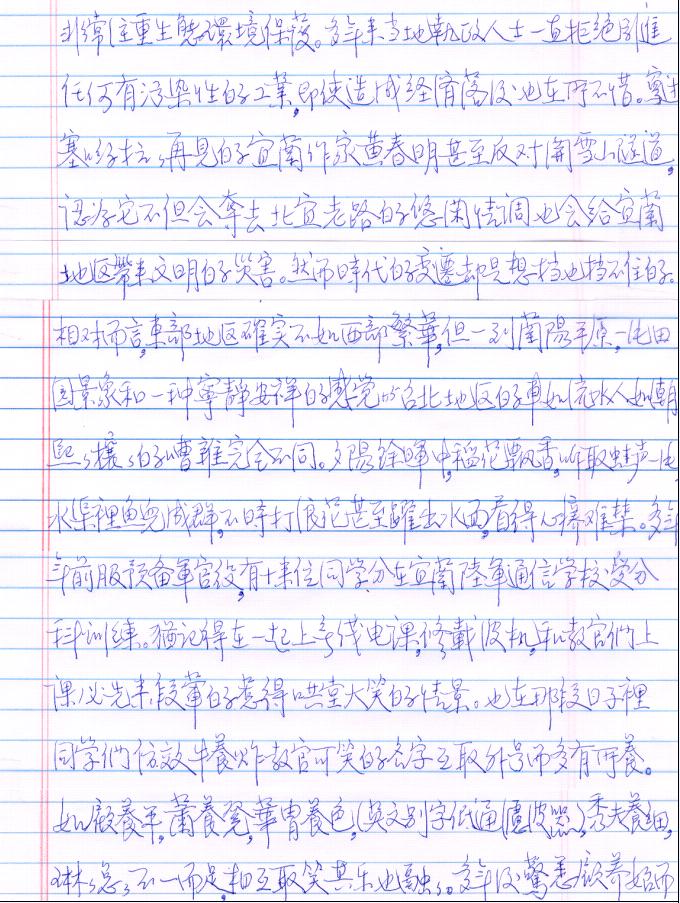 非常注重生態环環境保護。多年来当地執政人士一直拒絕引進
任何有污染性的工業,即使造成经濟落後也在所不惜。寫
塞い子拉、再見的宜蘭作家黄春明甚至反对開雪山隧道,
認为它不但会奪去北宜老路的悠闲情调也会給宜蘭
地区帶来文明的災害。然而時代的变遷却是想挡也挡不住的。
相对而言,東部地区確实不如西部繁華,但一到蘭陽平原,一片田
園景象和一种寧靜安祥的感觉与台北地区的車如流水人如潮
熙々攘々的嘈雜完全不同。夕陽餘暉中,稻花飄香,听取蛙声一片,
水渠裡魚兒成群,不時打浪花甚至躍出水面,看得心癢难禁。多年
年前服预备軍官役,有十来位同学分在宜蘭陸軍通信学校受分
科训練。猶记得在一起上無线电课,修載波机,和教官們上
课必先来段葷的惹得哄堂大笑的情景。也在那段日子裡
同学們仿效牛養炸教官可笑的名字互取外号而多有所養。
如顧養羊,蕭養凳,華胄養色,(英文别字低通濾波器),秀夫養細,
林々怠々不一而足,相互取笑其乐也融々。多年後驚悉顧养始而